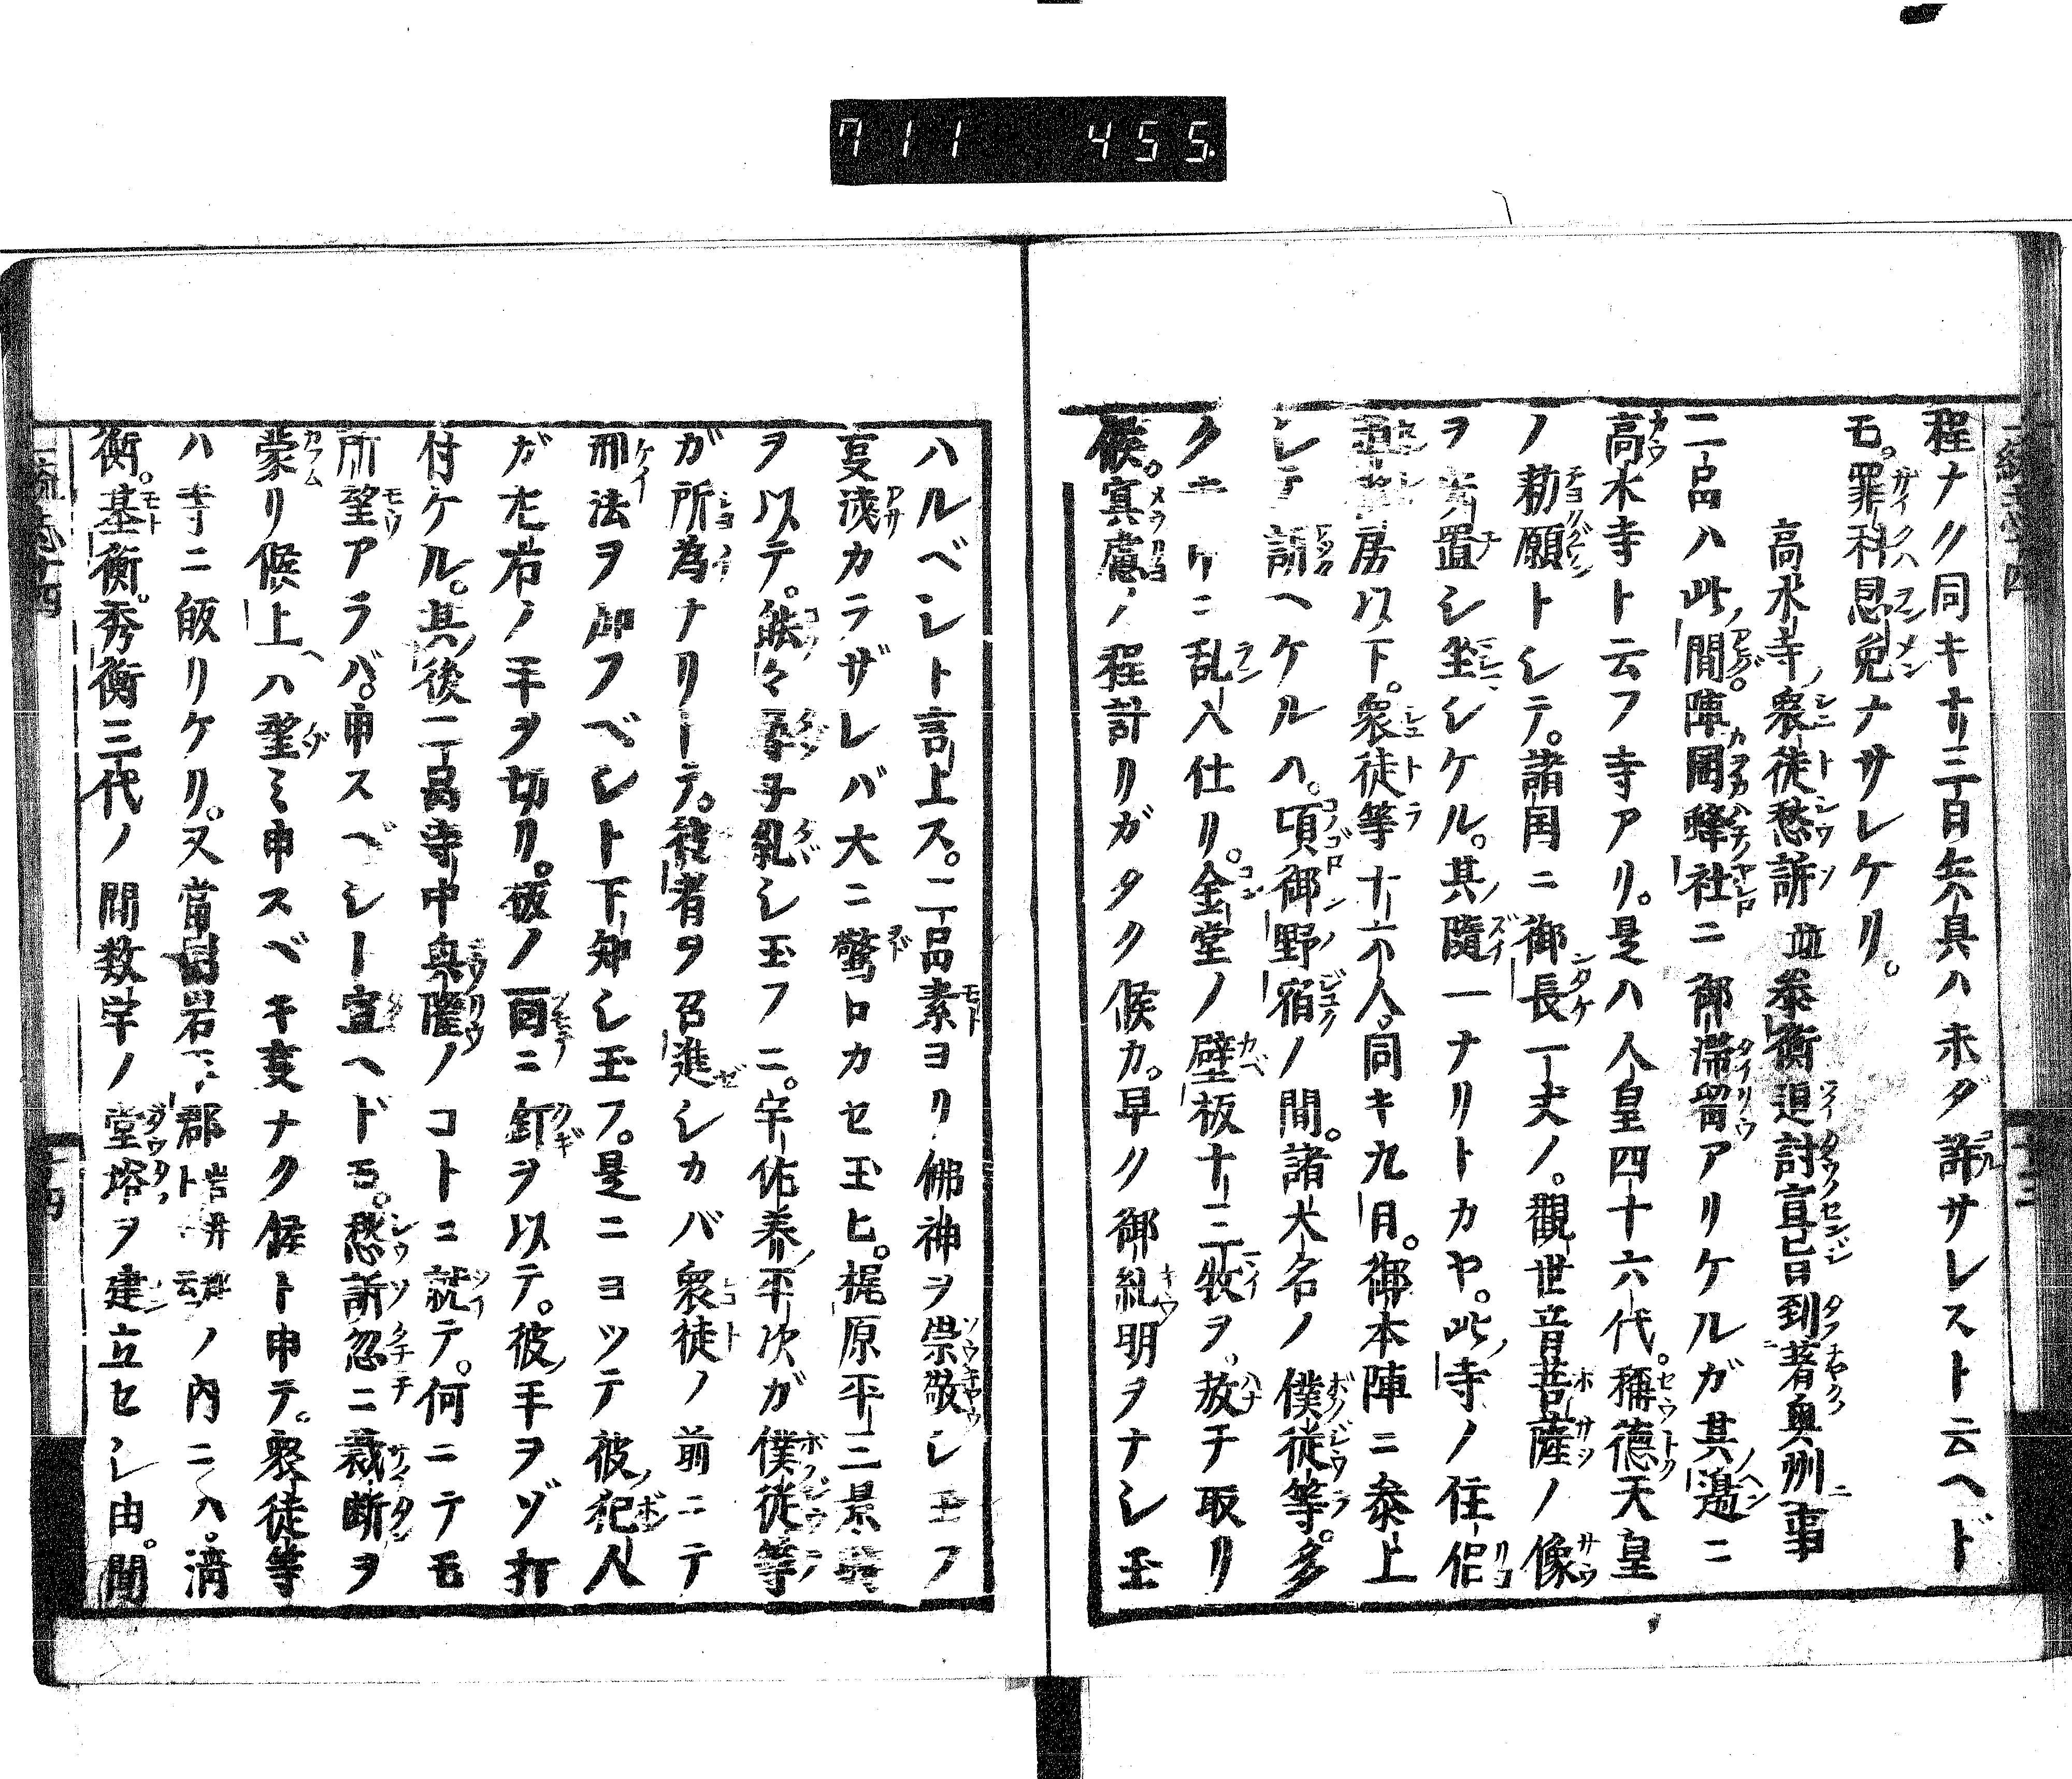 711 455.
程ナク同キ十三日兵具ハ未ダ許サレスト云ヘド
モ。罪科恩免ナサレケリ。
高水寺衆徒愁訴並泰衡追討宣旨到著奥州事
二品ハ此間陣岡蜂社ニ御滞留アリケルガ其邊ニ
高水寺ト云フ寺アリ。是ハ人皇四十六代。稱德天皇
ノ勅願トシテ。諸国ニ御長一丈ノ。觀世音菩薩ノ像
ヲ 置シ坐シケル。其随一ナリトカヤ。此寺ノ住侶
房以下。衆徒等十六人。同キ九月。御本陣ニ参上
シテ訴ヘケルハ。頃御野宿ノ間。諸大名ノ僕従等。多
ク ニ乱入仕リ。金堂ノ壁板十三牧ヲ。放チ取リ
候。冥慮ノ程計リガタク候カ。早ク御糺明ヲナシ玉
ハルベシト言上ス。二品素ヨリ佛神ヲ崇敬シ玉フ
叓淺カラザレバ大ニ驚ロカセ玉ヒ。梶原平三景時
ヲ以テ。 々尋子糺シ玉フニ。宇佐美平次ガ僕従等
ガ所為ナリーテ。彼者ヲ召進シカバ衆徒ノ前ニテ
刑法ヲ卸フベシト下知シ玉フ。是ニヨツテ彼ノ犯人
ガ左右ノ手ヲ切リ。板ノ面ニ釘ヲ以テ。彼手ヲゾ打
付ケル。其後二品寺中興隆ノコトニ就テ。何ニテモ
所望アラバ。申スベシー宣ヘドモ。愁訴忽ニ裁断ヲ
蒙リ候上ハ望ミ申スベキ叓ナク候ト申テ。衆徒等
ハ寺ニ皈リケリ。又當国岩 郡 ノ内ニハ。清
衡。基衡。秀衡三代ノ間数宇ノ堂塔ヲ建立セシ由。聞